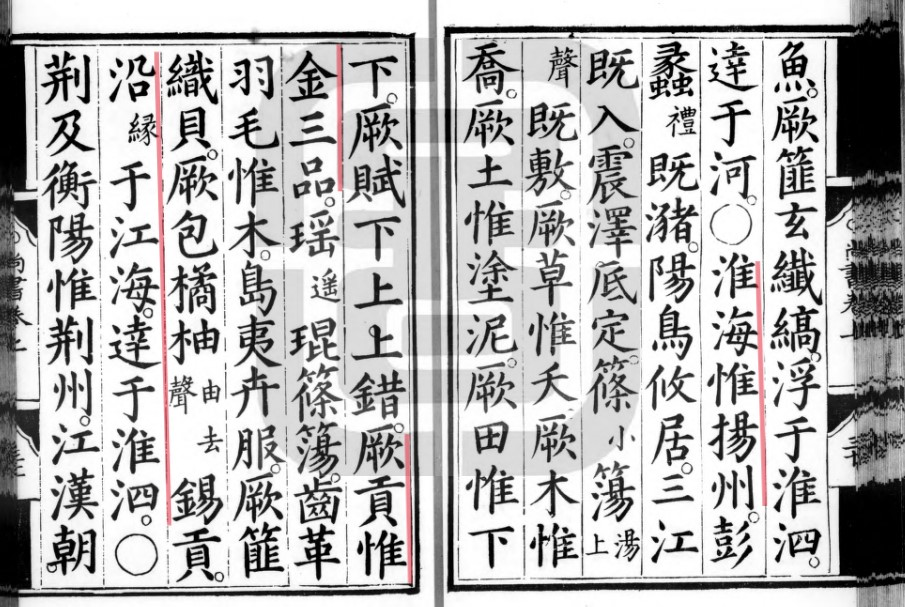 魚。厥篚玄纖縞。浮于淮泗。
達于河。○淮海惟揚州。彭
蠡禮既瀦。陽鳥攸居。三江
既入。震澤底定。篠小簜湯上
聲既敷。厥草惟夭厥木惟
喬。厥土惟塗泥。厥田惟下
下。厥賦下上上錯。厥貢惟
金三品。瑶遥琨篠簜。齒革
羽毛惟木。島夷卉服。厥篚
織貝。厥包橘柚由去聲錫貢。
沿縁于江海。達于淮泗。○
荆及衡陽惟荆州。江漢朝
尚書卷上